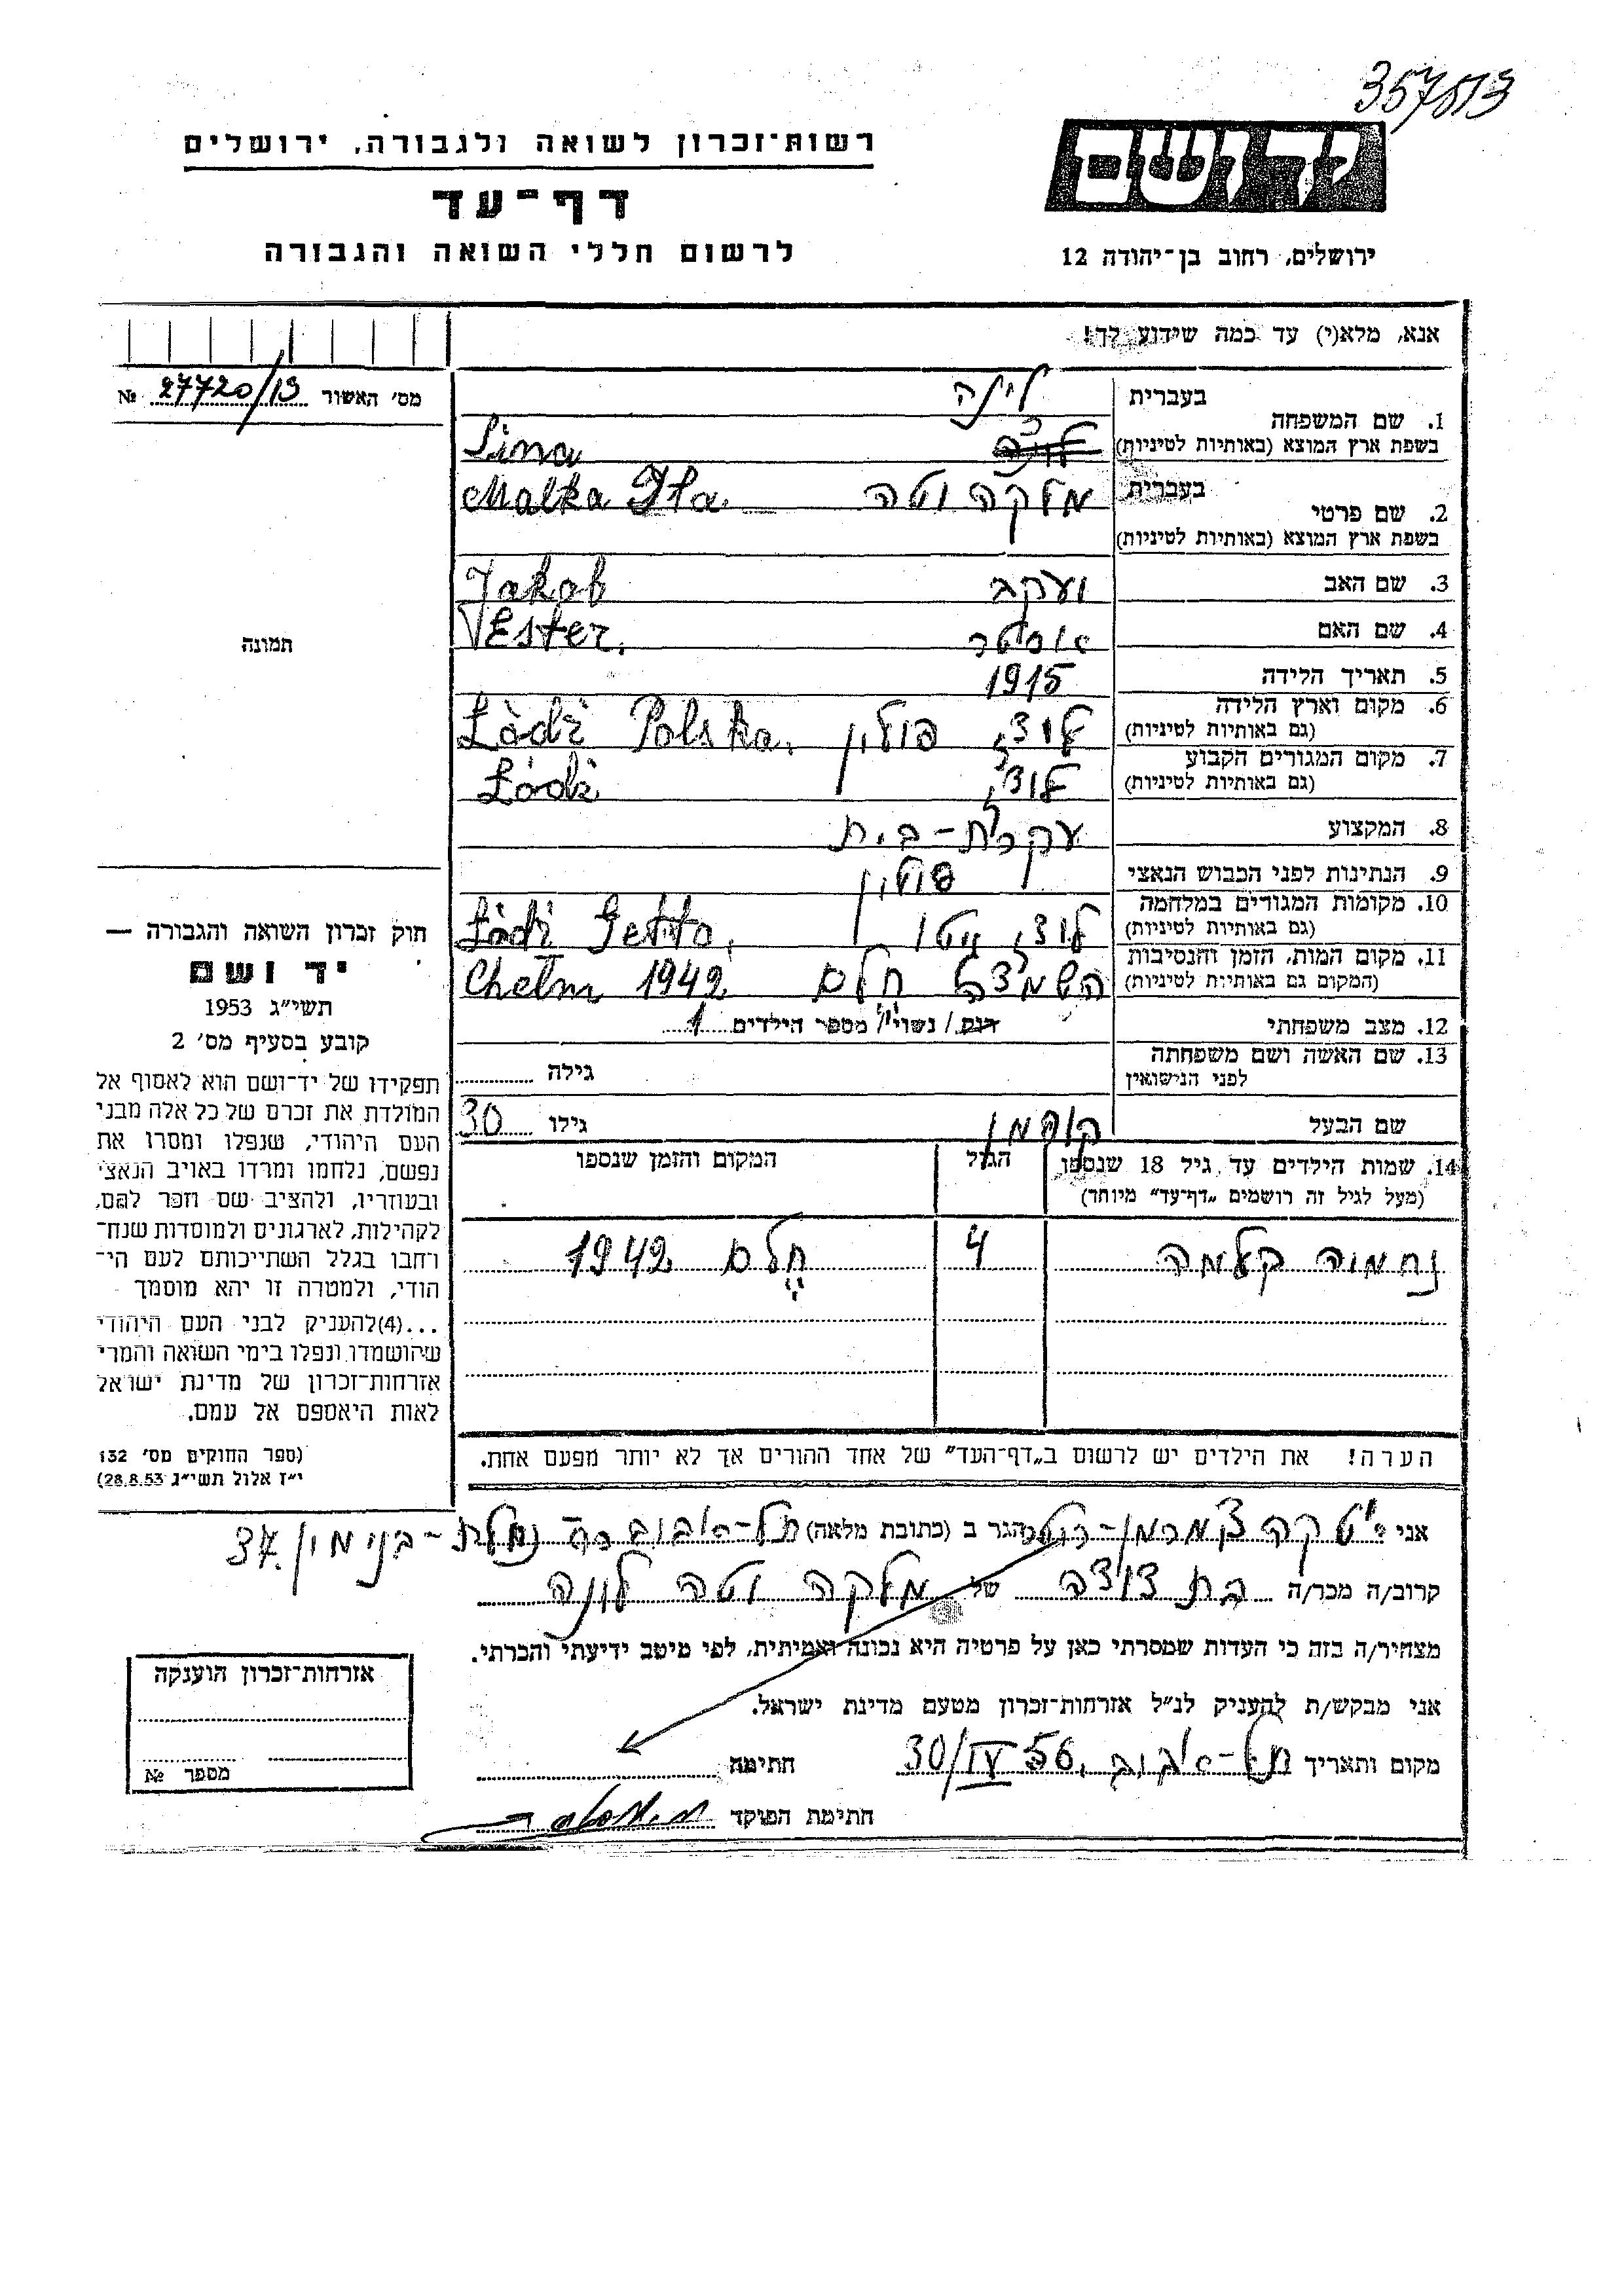 357513
רשות־זכרון לשואה ולגבורה, ירושלים
דף־עד
לרשום חללי השואה והגבורה
יד ושם
ירושלים, רחוב בן־יהודה 12
אנא, מלא(י) עד כמה שידוע לך!
מס׳ האשור № 27720/13
1. שם המשפחה בעברית לינה
בשפת ארץ המוצא (באותיות לטיניות) Lina
2. שם פרטי בעברית מלקה יטה Malka Ita
בשפת ארץ המוצא (באותיות לטיניות)
3. שם האב יעקב Jakob
4. שם האם אסטר Ester.
5. תאריך הלידה 1915
6. מקום וארץ הלידה לודז, פולין Łòdź Polska.
(גם באותיות לטיניות)
7. מקום המגורים הקבוע לודז, Łódź
(גם באותיות לטיניות)
8. המקצוע עקרת-בית
9. הנתינות לפני הכבוש הנאצי פולין
10. מקומות המגורים במלחמה לודז, גיטו Łódź Getto,
(גם באותיות לטיניות)
11. מקום המות, הזמן והנסיבות חלם Chełm 1942
(המקום גם באותיות לטיניות)
12. מצב משפחתי רווק / נשוי / מספר הילדים 1
13. שם האשה ושם משפחתה
לפני הנישואין גילה
שם הבעל גילו 30
14. שמות הילדים עד גיל 18 שנספו
(מעל לגיל זה רושמים „דף־עד״ מיוחד)
הגיל
המקום והזמן שנספו
נחמיה 4 חלם 1942
הערה! את הילדים יש לרשום ב„דף־העד״ של אחד ההורים אך לא יותר מפעם אחת.
תמונה
חוק זכרון השואה והגבורה —
יד ושם
תשי״ג 1953
קובע בסעיף מס׳ 2
תפקידו של יד־ושם הוא לאסוף אל
המולדת את זכרם של כל אלה מבני
העם היהודי, שנפלו ומסרו את
נפשם, נלחמו ומרדו באויב הנאצי
ובעוזריו, ולהציב שם וזכר להם,
לקהילות, לארגונים ולמוסדות שנח־
רבו בגלל השתייכותם לעם הי־
הודי, ולמטרה זו יהא מוסמך
...(4) להעניק לבני העם היהודי
שהושמדו ונפלו בימי השואה והמרי
אזרחות־זכרון של מדינת ישראל
לאות היאספם אל עמם.
(ספר החוקים מס׳ 132
י״ז אלול תשי״ג 28.8.53)
אני הגר ב (כתובת מלאה) תל-אביב נחלת-בנימין 37.
קרוב/ה מכר/ה בת דודה של מלקה יטה לינה
מצהיר/ה בזה כי העדות שמסרתי כאן על פרטיה היא נכונה ואמיתית, לפי מיטב ידיעתי והכרתי.
אני מבקש/ת להעניק לנ״ל אזרחות־זכרון מטעם מדינת ישראל.
מקום ותאריך תל-אביב, 30/IV 56 חתימה
חתימת הפוקד
אזרחות־זכרון הוענקה
מספר №